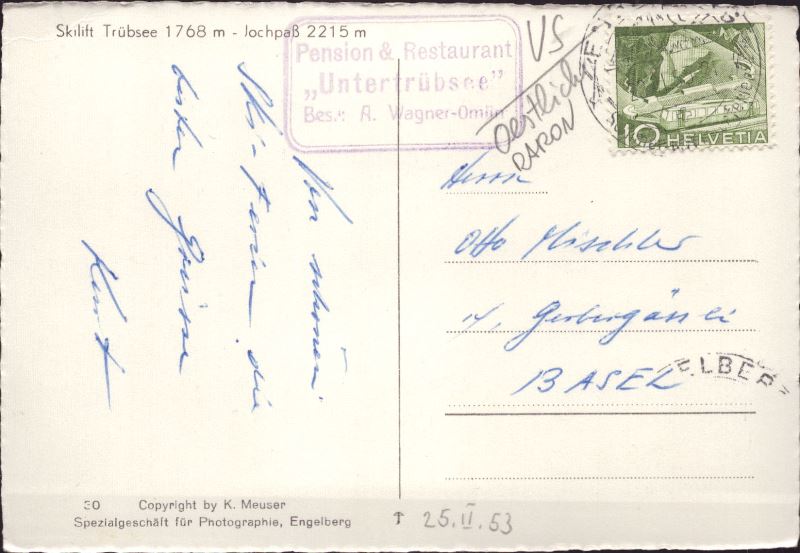 Skilift Trübsee 1768 m - Jochpaß 2215 m
Pension & Restaurant
„Untertrübsee"
Bes.: A. Wagner-Omlin
VS
Oestlich
RARON
10 HELVETIA
Von schönen
Ski-Ferien die
besten Grüsse
Kurt
Herrn
Otto Mischler
14, Gerbergässli
BASEL
ELBER
30 Copyright by K. Meuser
Spezialgeschäft für Photographie, Engelberg
25.II.53